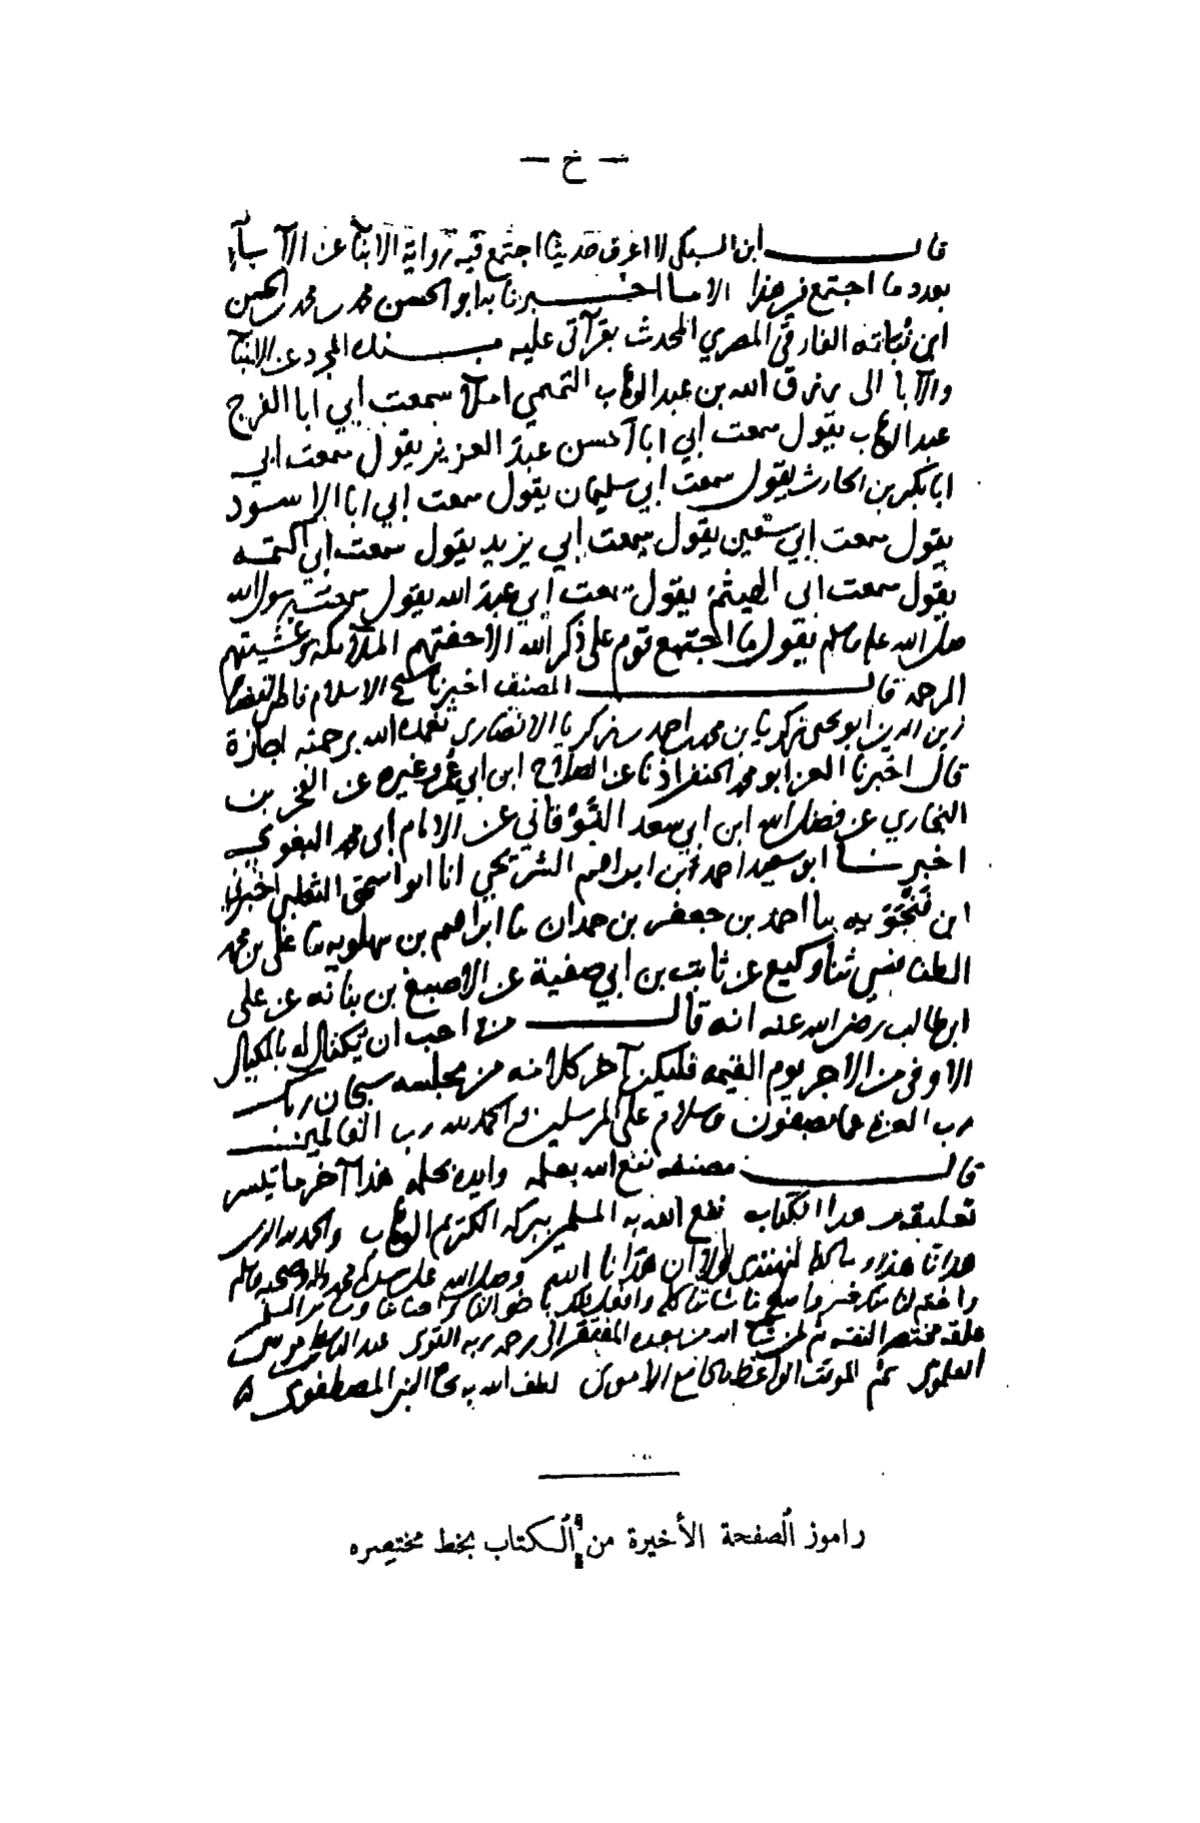 — خ —
قال ابن السبكي لا اعرف حديثا اجتمع فيه رواية الابنا عن الآبآء
بعدد ما اجتمع في هذا الا ما اخبرنا به ابو الحسن محمد بن محمد بن الحسن
ابن نباتة الفارقي المصري المحدث بقرآتي عليه المجرد عن الابنآ
والآبا الى رزق الله بن عبد الوهاب التميمي املآ سمعت أبي ابا الفرج
عبد الوهاب يقول سمعت أبي ابا الحسن عبد العزيز يقول سمعت ابي
ابا بكر بن الحارث يقول سمعت ابي سليمان يقول سمعت ابي ابا الاسود
يقول سمعت ابي سفين يقول سمعت ابي يزيد يقول سمعت ابي اكمه
يقول سمعت ابي الهيثم يقول سمعت ابي عبد الله يقول سمعت رسول الله
صلى الله عليه وسلم يقول ما اجتمع قوم على ذكر الله الا حفتهم الملائكة وغشيتهم
الرحمة قال المصنف اخبرنا شيخ الاسلام قاضي القضاة
زين الدين ابو يحيى زكريا بن محمد بن احمد بن زكريا الانصاري تغمده الله برحمته اجازة
قال اخبرنا العز ابو محمد الحنفي اذنا عن الصلاح ابن ابي عمر وغيره عن الفخر بن
البخاري عن فضل الله ابن ابي سعد النوقاني عن الامام ابي محمد البغوي
اخبرنا ابو سعيد احمد بن ابراهيم الشريحي انا ابو اسحق الثعلبي اخبرني
ابن فنجويه ثنا احمد بن جعفر بن حمدان ثنا ابراهيم بن سهلويه ثنا علي بن محمد
الطنافسي ثنا وكيع عن ثابت بن ابي صفية عن الاصبغ بن بناته عن علي
ابن طالب رضي الله عنه انه قال من احب ان يكتال له بالمكيال
الاوفى من الاجر يوم القيمه فليكن آخر كلامه من مجلسه سبحان ربك
رب العزة عما يصفون وسلام على المرسلين والحمد لله رب العالمين
قال مصنفه نفع الله بعلمه وايده بحلمه هذا آخر ما تيسر
تعليقه من هذا الكتاب نفع الله به المسلمين ببركة الكريم الوهاب والحمد لله الذي
هدانا لهذا وما كنا لنهتدي لولا ان هدانا الله وصلى الله على سيدنا محمد واله وصحبه وسلم
علقه مختصره لنفسه ثم لمن شآء الله من بعده المفتقر الى رحمة ربه القوي عبد الباسط بن موسى
العلموي ثم الموقت الواعظ بالجامع الأموي لطف الله به بجاه النبي المصطفوي
راموز الصفحة الأخيرة من الكتاب بخط مختصره